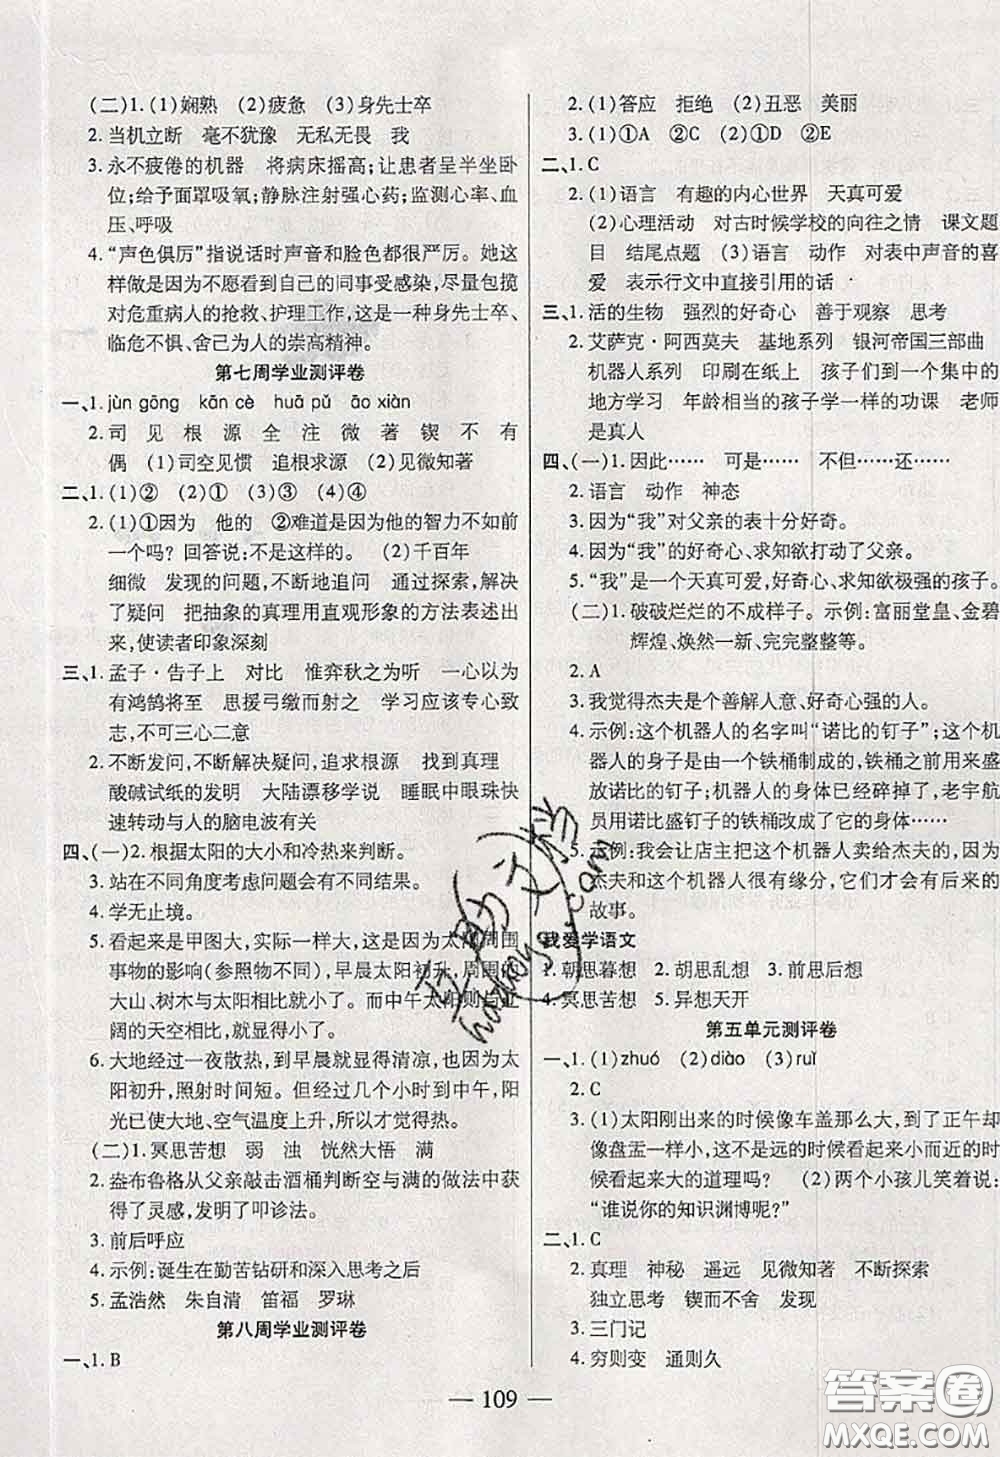 (二)1.(1)娴熟 (2)疲惫 (3)身先士卒
2.当机立断 毫不犹豫 无私无畏 我
3.永不疲倦的机器 将病床摇高;让患者呈半坐卧
位;给予面罩吸氧;静脉注射强心药;监测心率、血
压、呼吸
4.“声色俱厉”指说话时声音和脸色都很严厉。她这
样做是因为不愿看到自己的同事受感染,尽量包揽
对危重病人的抢救、护理工作,这是一种身先士卒、
临危不惧、舍己为人的崇高精神。
第七周学业测评卷
一、1.jùn gōng kān cè huā pǔ āo xiàn
2.司 见 根 源 全 注 微 著 锲 不 有
偶 (1)司空见惯 追根求源 (2)见微知著
二、1.(1)② (2)① (3)③ (4)④
2.(1)①因为 他的 ②难道是因为他的智力不如前
一个吗? 回答说:不是这样的。 (2)千百年
细微 发现的问题,不断地追问 通过探索,解决
了疑问 把抽象的真理用直观形象的方法表述出
来,使读者印象深刻
三、1.孟子·告子上 对比 惟弈秋之为听 一心以为
有鸿鹄将至 思援弓缴而射之 学习应该专心致
志,不可三心二意
2.不断发问,不断解决疑问,追求根源 找到真理
酸碱试纸的发明 大陆漂移学说 睡眠中眼珠快
速转动与人的脑电波有关
四、(一)2.根据太阳的大小和冷热来判断。
3.站在不同角度考虑问题会有不同结果。
4.学无止境。
5.看起来是甲图大,实际一样大,这是因为太阳周围
事物的影响(参照物不同),早晨太阳初升,周围的
大山、树木与太阳相比就显得大。而中午太阳则与
阔的天空相比,就显得小了。
6.大地经过一夜散热,到早晨就显得清凉,也因为太
阳初升,照射时间短。经过几个小时到中午,阳
光已使大地、空气温度上升,所以才觉得热。
(二)1.冥思苦想 弱 浊 恍然大悟 满
2.奋布鲁格从父亲敲击酒桶判断空与满的做法中获
得了灵感,发明了叩诊法。
3.前后呼应
4.示例:诞生在勤苦钻研和深入思考之后
5.孟浩然 朱自清 笛福 罗琳
第八周学业测评卷
一、1.B
2.(1)答应 拒绝 (2)丑恶 美丽
3.(1)①A ②C (2)①D ②E
二、1.C
2.(1)语言 有趣的内心世界 天真可爱
(2)心理活动 对古时候学校的向往之情 课文题
目 结尾点题 (3)语言 动作 对表中声音的喜
爱 表示行文中直接引用的话
三、1.活的生物 强烈的好奇心 善于观察 思考
2.艾萨克·阿西莫夫 基地系列 银河帝国三部曲
机器人系列 印刷在纸上 孩子们到一个集中的
地方学习 年龄相当的孩子学一样的功课 老师
是真人
四、(一)1.因此…… 可是…… 不但……还……
2.语言 动作 神态
3.因为“我”对父亲的表十分好奇。
4.因为“我”的好奇心、求知欲打动了父亲。
5.“我”是一个天真可爱,好奇心、求知欲极强的孩子。
(二)1.破破烂烂的不成样子。示例:富丽堂皇、金碧
辉煌、焕然一新、完完整整等。
2.A
3.我觉得杰夫是个善解人意、好奇心强的人。
4.示例:这个机器人的名字叫“诺比的钉子”;这个机
器人是由一个铁桶制成的,铁桶之前是用来盛
放诺比的钉子;机器人的身体已经碎掉了,老宇航
员用诺比盛钉子的铁桶改成了它的身体……
5.示例:我会让店主把这个机器人卖给杰夫的,因为
杰夫和这个机器人很有缘分,它们会有很多新的
故事。
我爱学语文
1.朝思暮想 2.胡思乱想 3.前思后想
4.冥思苦想 5.异想天开
第五单元测评卷
一、1.(1)zhuó (2)diào (3)ruǐ
2.C
3.(1)太阳刚出来的时候像车盖那么大,到了正午却
像盘盂一样小,这不是远的时候看起来小而近的时
候看起来大的道理吗? (2)两个小孩儿笑着说:
“谁说你的知识渊博呢?”
二、1.C
2.真理 神秘 遥远 见微知著 不断探索
独立思考 锲而不舍 发现
3.三门记
4.穷则变 通则久
— 109 —
互助文档
hzdwyg.com
答案圈
MXQE.COM